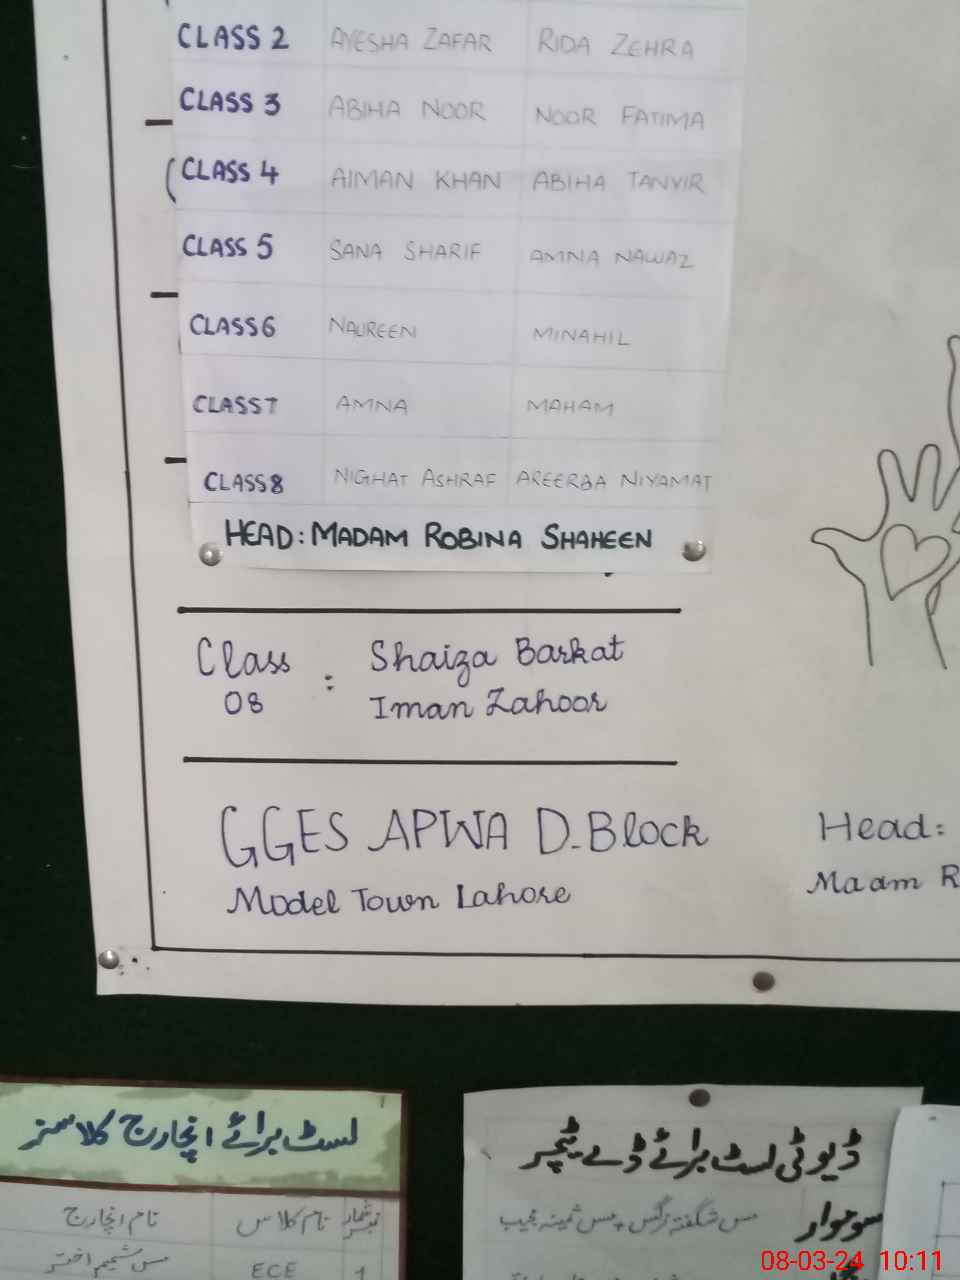 CLASS 2 AYESHA ZAFAR RIDA ZEHRA
CLASS 3 ABIHA NOOR NOOR FATIMA
CLASS 4 AIMAN KHAN ABIHA TANVIR
CLASS 5 SANA SHARIF AMNA NAWAZ
CLASS 6 NAUREEN MINAHIL
CLASS 7 AMNA MAHAM
CLASS 8 NIGHAT ASHRAF AREERBA NIYAMAT
HEAD: MADAM ROBINA SHAHEEN
Class 08 : Shaiza Barkat
Iman Zahoor
GGES APWA D-Block
Model Town Lahore
Head:
Maam R
لسٹ برائے انچارج کلاسز
نمبر شمار نام کلاس نام انچارج
1 ECE مس شمیم اختر
ڈیوٹی لسٹ برائے ڈے ٹیچر
سوموار مس شگفتہ نرگس + مس ثمینہ مجیب
08-03-24 10:11